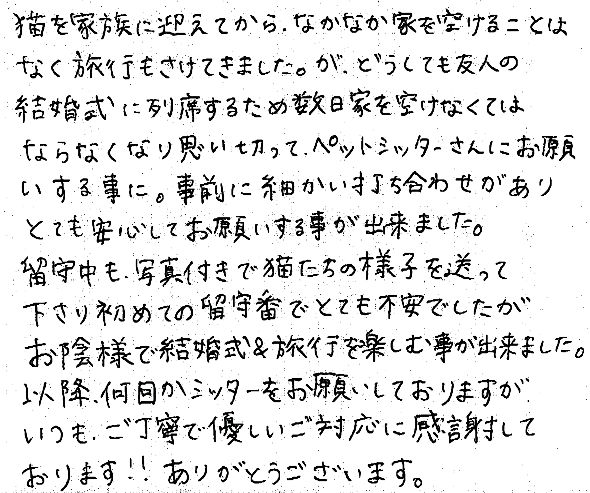 猫を家族に迎えてから、なかなか家を空けることは
なく旅行もさけてきました。が、どうしても友人の
結婚式に列席するため数日家を空けなくては
ならなくなり思い切って、ペットシッターさんにお願
いする事に。事前に細かい打ち合わせがあり
とても安心してお願いする事が出来ました。
留守中も、写真付きで猫たちの様子を送って
下さり初めての留守番でとても不安でしたが
お陰様で結婚式&旅行を楽しむ事が出来ました。
以降、何回かシッターをお願いしておりますが
いつも、ご丁寧で優しいご対応に感謝して
おります!! ありがとうございます。